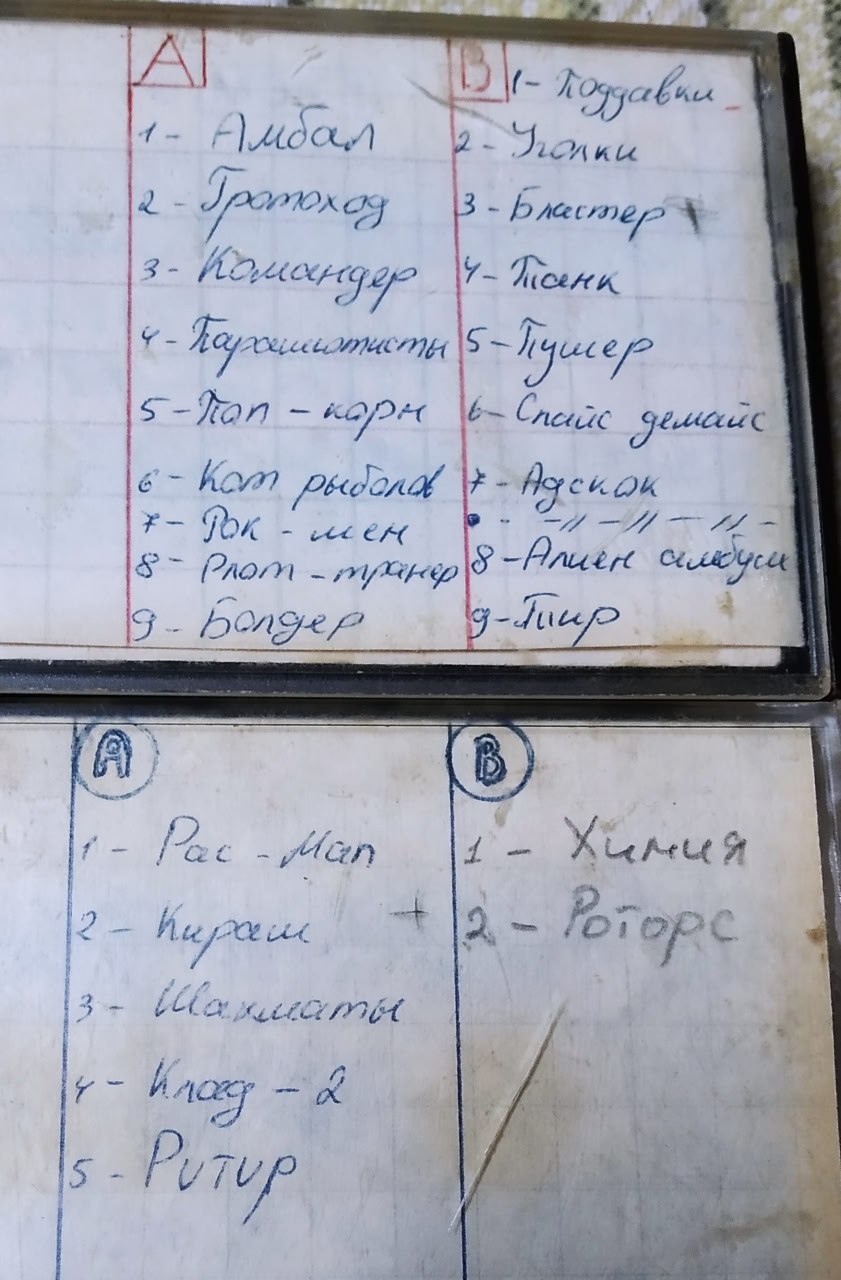 А
1- Амбал
2- Громоход
3- Командер
4- Парашютисты
5- Поп-корн
6- Кот рыболов
7- Рок-мен
8- Рлот-транер
9- Болдер
В
1- Поддавки
2- Уголки
3- Бластер
4- Танк
5- Пушер
6- Спайс демайс
7- Адскок
• - -〃-〃-〃-
8- Алиен амбуш
9- Тир
А
1- Рас-Мап
2- Кираш
3- Шахматы
4- Клад-2
5- Ритир
В
1- Химия
+ 2- Роторс